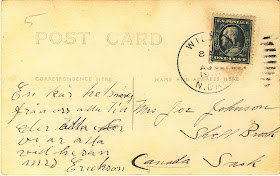 POST CARD
CORRESPONDENCE HERE
NAME AND ADDRESS HERE
U.S. POSTAGE
ONE CENT
WIL
8
N.DAK
En kär helsning
från oss alla till
eder alla
vi ar alla
med
Erickson
Mrs Joe Johnson
Shell Brook
Canada Sask